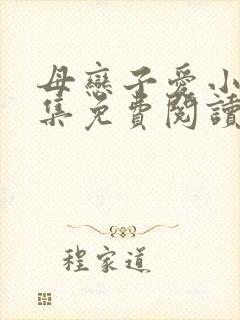 母戀子愛小
集免費閱讀
程家道